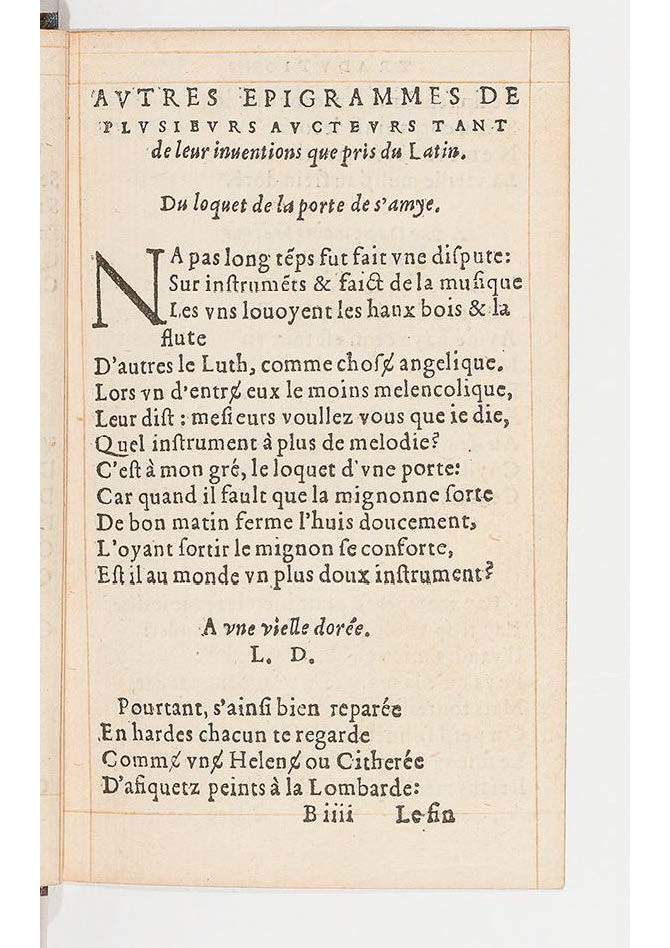 AVTRES EPIGRAMMES DE
PLVSIEVRS AVCTEVRS TANT
de leur inuentions que pris du Latin.
Du loquet de la porte de s'amye.
NA pas long tẽps fut fait vne diſpute:
Sur inſtrumẽts & faict de la muſique
Les vns louoyent les haux bois & la
flute
D'autres le Luth, comme choſɇ angelique.
Lors vn d'entrɇ eux le moins melencolique,
Leur diſt : meſieurs voullez vous que ie die,
Quel inſtrument à plus de melodie?
C'eſt à mon gré, le loquet d'vne porte:
Car quand il fault que la mignonne ſorte
De bon matin ferme l'huis doucement,
L'oyant ſortir le mignon ſe conforte,
Eſt il au monde vn plus doux inſtrument?
A vne vielle dorée.
L. D.
Pourtant, s'ainſi bien reparée
En hardes chacun te regarde
Commɇ vnɇ Helenɇ ou Citherée
D'afiquetz peints à la Lombarde:
B iiii Le fin